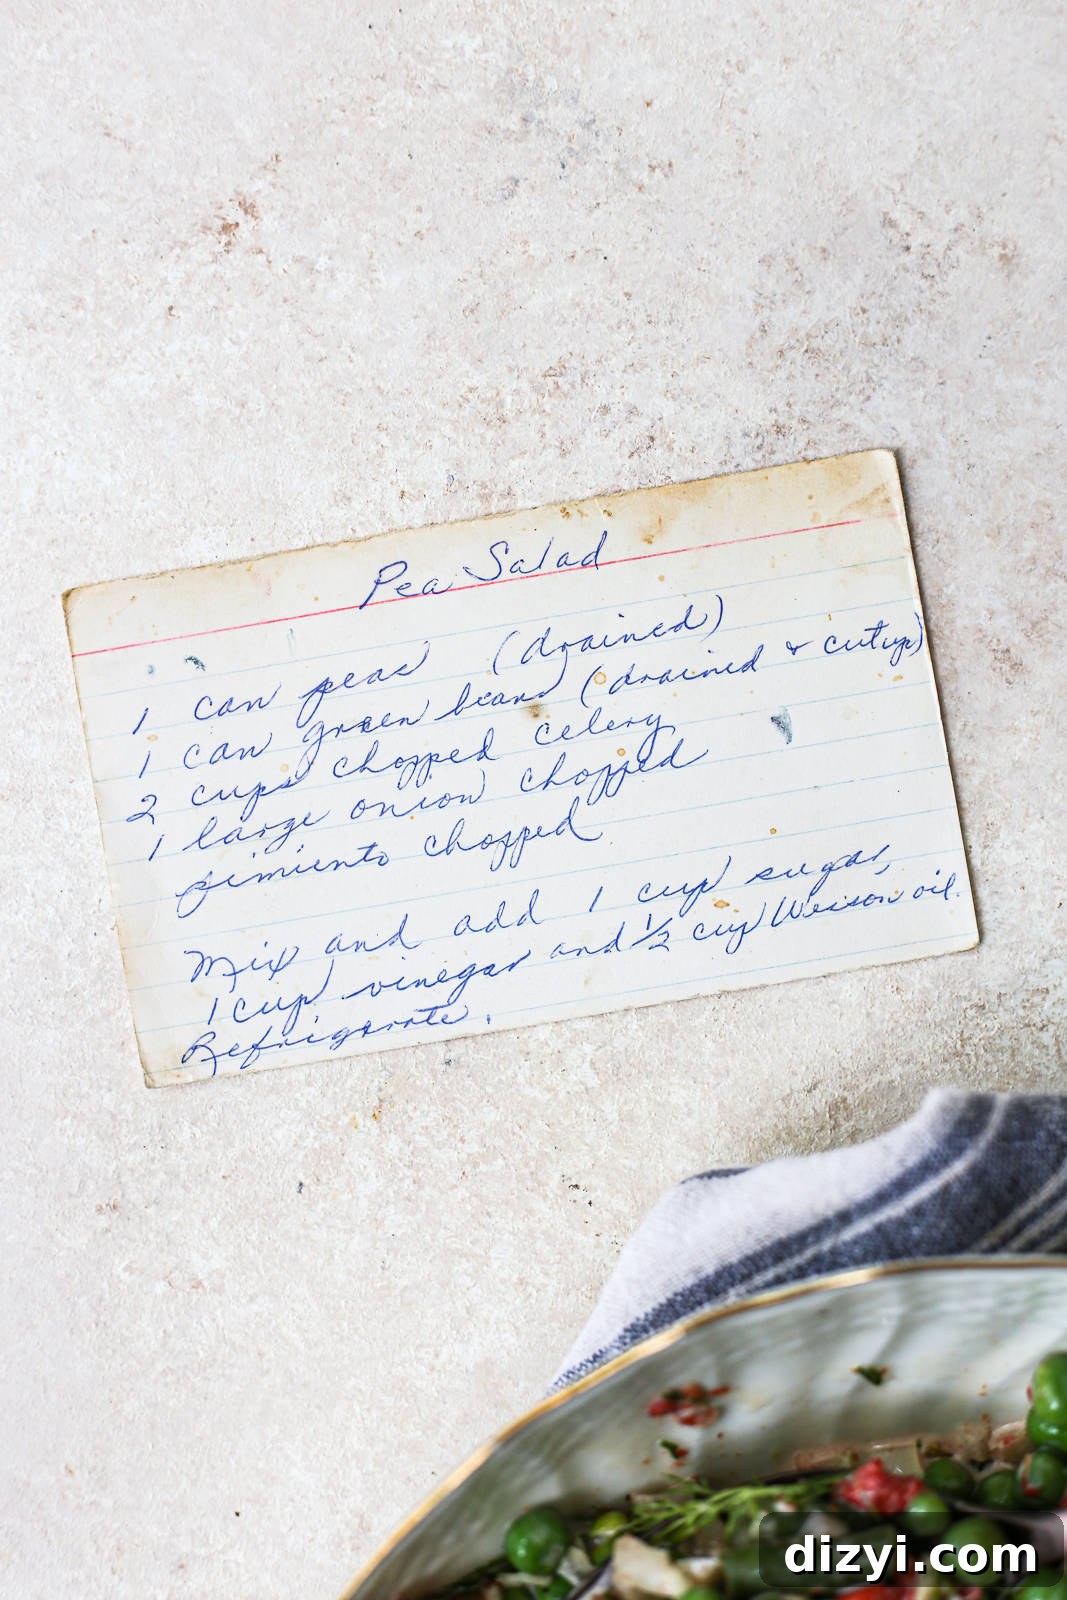 Pea Salad
1 can peas (drained)
1 can green beans (drained & cutup)
2 cups chopped celery
1 large onion chopped
pimiento chopped
Mix and add 1 cup sugar,
1 cup vinegar and 1/2 cup Wesson oil.
Refrigerate.
dizyi.com